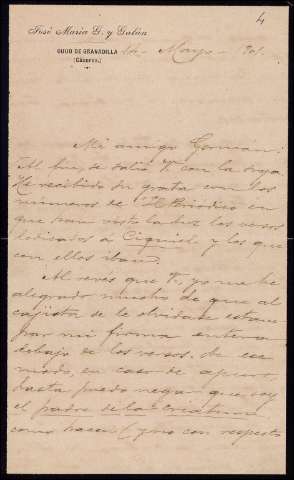 4
José María G. y Galán
GUIJO DE GRANADILLA
(Cáceres)
14 - Mayo - 901.
Mi amigo Germán:
Al fin, se salió V. con la suya.
He recibido su grata con los
números de "El Periódico" en
que han visto la luz los versos
dedicados a Ciguiel y los que
con ellos iban.
Al revés que V., yo me he
alegrado mucho de que al
cajista se le olvidase estam-
par mi firma entera
debajo de los versos. De ese
modo, en caso de apuro,
hasta puedo negar que soy
el padre de la criatura
como hacen (y no con respecto